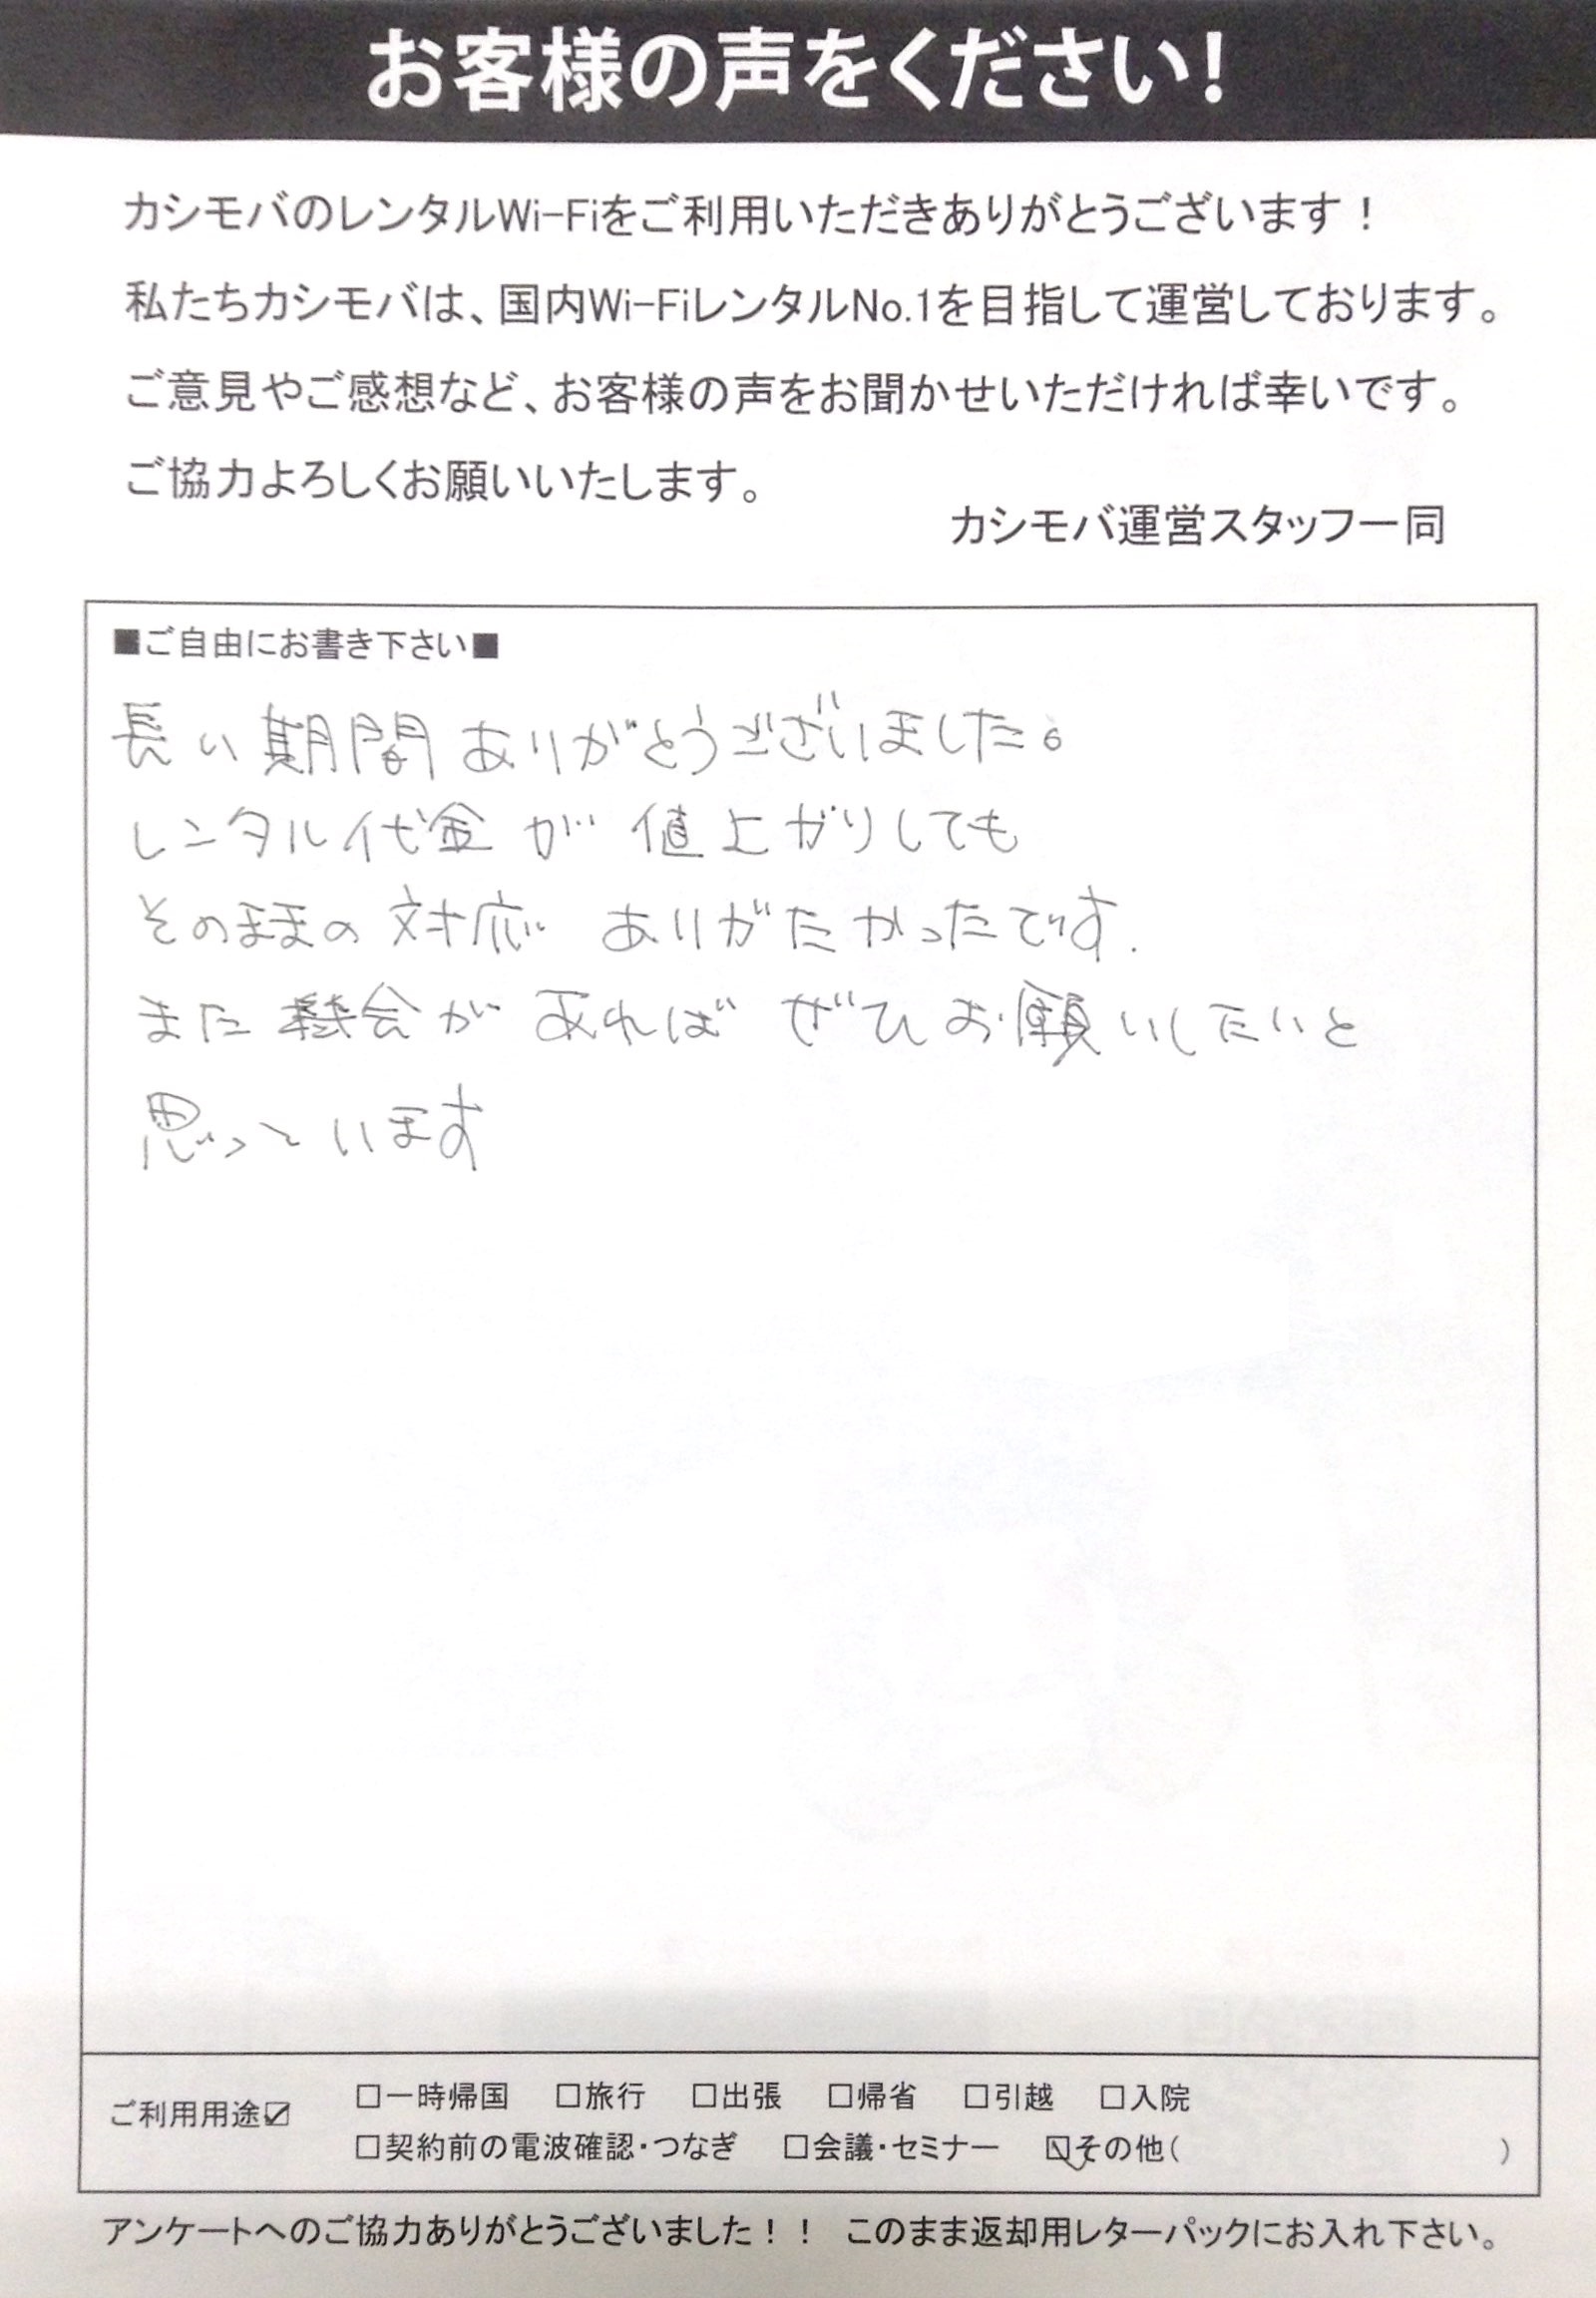 お客様の声をください!
カシモバのレンタルWi-Fiをご利用いただきありがとうございます！
私たちカシモバは、国内Wi-FiレンタルNo.1を目指して運営しております。
ご意見やご感想など、お客様の声をお聞かせいただければ幸いです。
ご協力よろしくお願いいたします。
カシモバ運営スタッフ一同
■ご自由にお書き下さい■
長い期間ありがとうございました。
レンタル代金が値上がりしても
そのままの対応ありがたかったです.
また機会があればぜひお願いしたいと
思っています
ご利用用途☑
□一時帰国 □旅行 □出張 □帰省 □引越 □入院
□契約前の電波確認・つなぎ □会議・セミナー ☑その他( )
アンケートへのご協力ありがとうございました！！ このまま返却用レターパックにお入れ下さい。